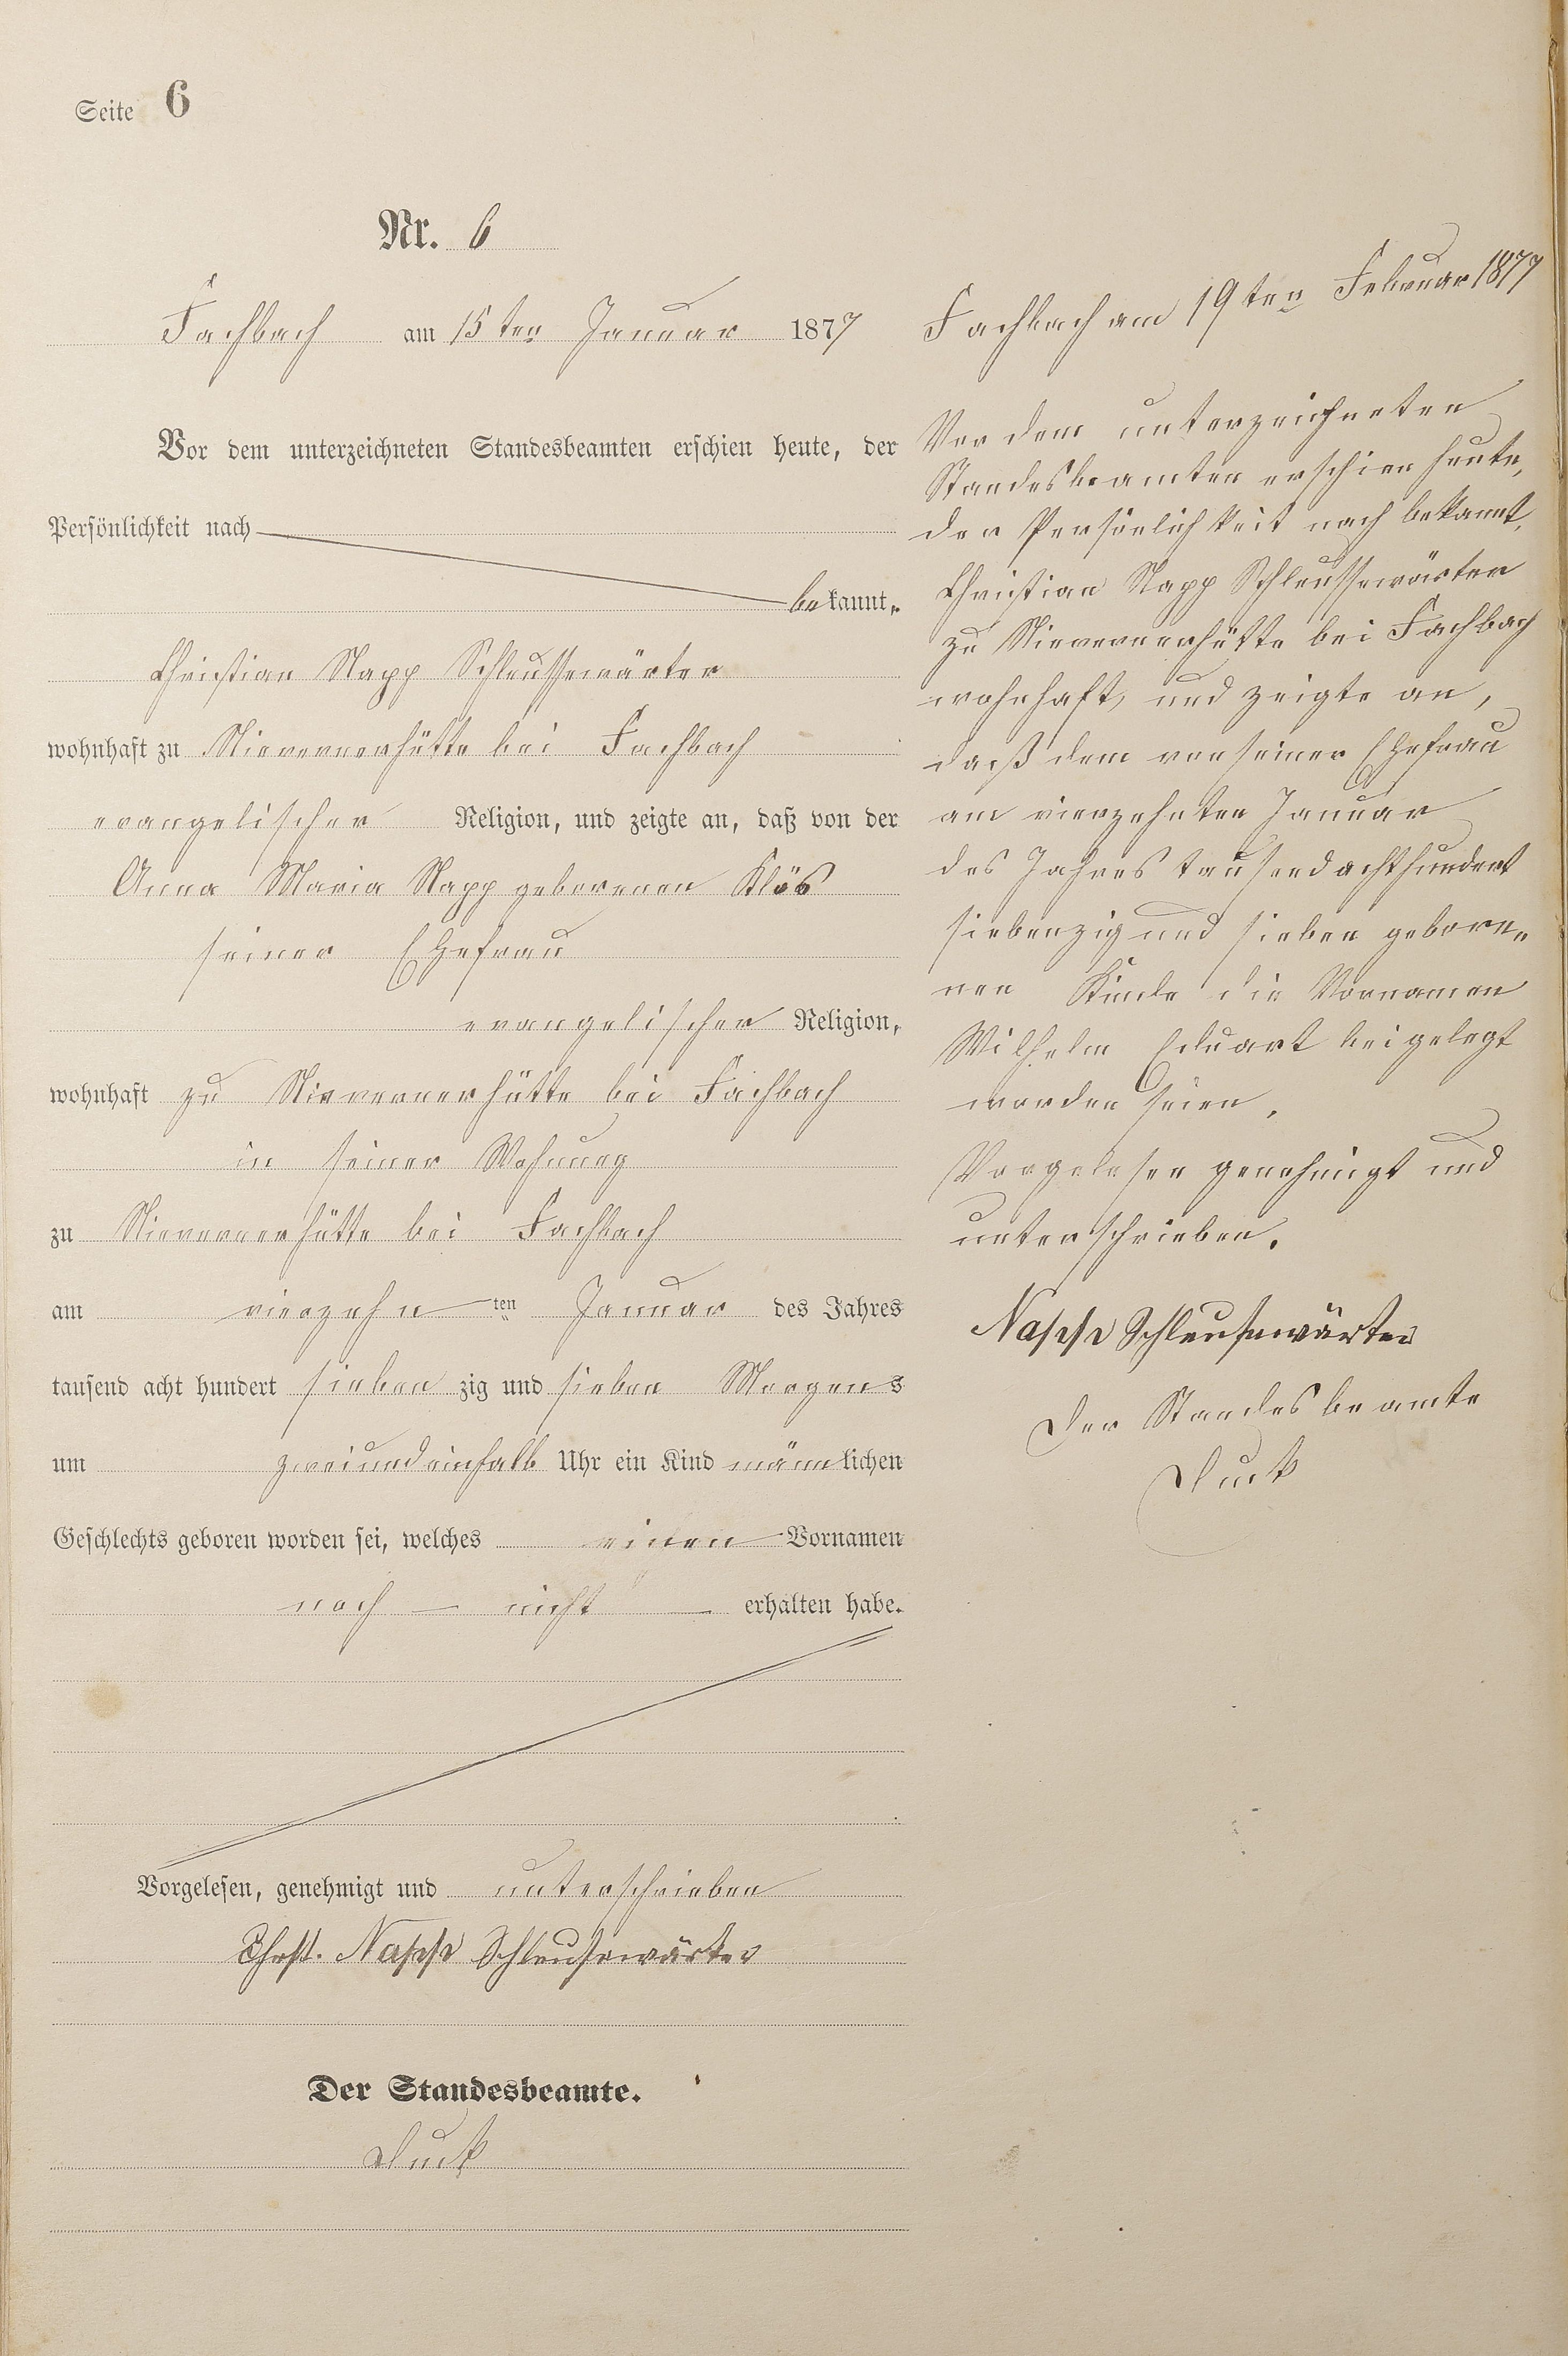 Seite 6
Nr. 6
Fachbach am 15ten Januar 1877
Vor dem unterzeichneten Standesbeamten erschien heute, der
Persönlichkeit nach
bekannt,
Christian Napp Schleussewärter
wohnhaft zu Nievernerhütte bei Fachbach
evangelischer Religion, und zeigte an, daß von der
Anna Maria Napp geborenen Klös
seiner Ehefrau
evangelischer Religion,
wohnhaft zu Nievernerhütte bei Fachbach
in seiner Wohnung
zu Nievernerhütte bei Fachbach
am vierzehn ten Januar des Jahres
tausend acht hundert sieben zig und sieben Morgens
um zweiundeinhalb Uhr ein Kind männlichen
Geschlechts geboren worden sei, welches einen Vornamen
noch — nicht — erhalten habe.
Vorgelesen, genehmigt und unterschrieben
Chrst. Napp Schleusewärter
Der Standesbeamte.
Duck
Fachbach am 19ten Februar 1877
Vor dem unterzeichneten
Standesbeamten erschien heute,
der Persönlichkeit nach bekannt,
Christian Napp Schleussewärter
zu Nievernerhütte bei Fachbach
wohnhaft, und zeigte an,
daß dem von seiner Ehefrau
am vierzehnten Januar
des Jahres tausendachthundert
siebenzig und sieben gebore„
nen Kinde die Vornamen
Wilhelm Eduart beigelegt
worden seien,
Vorgelesen genehmigt und
unterschrieben.
Napp Schleusewärter
Der Standesbeamte
Duck